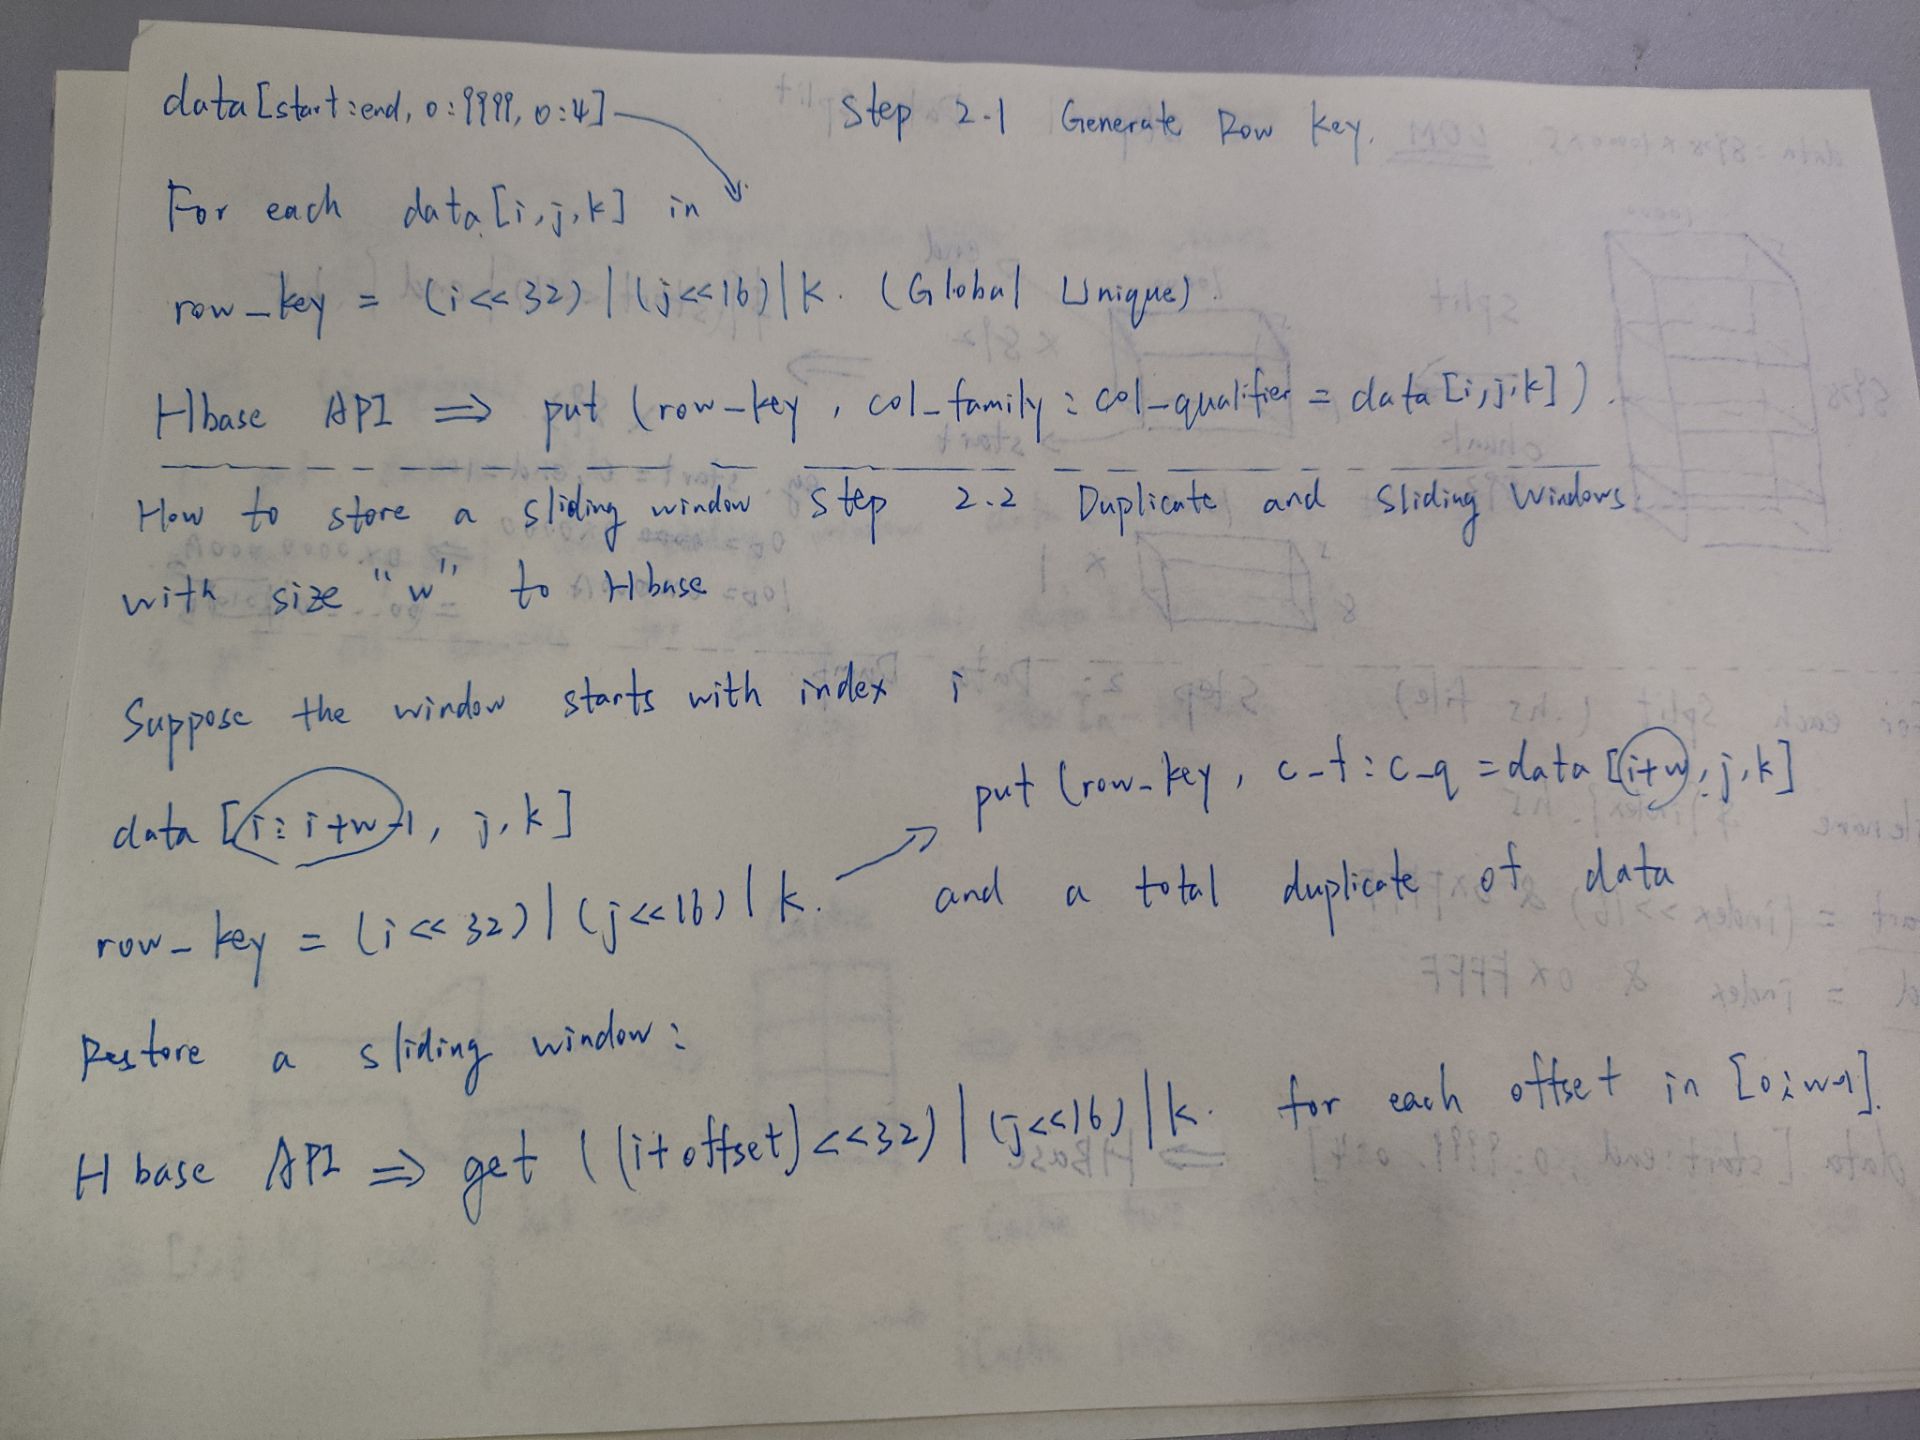 data [start:end, 0:9999, 0:4]
Step 2.1 Generate Row Key.
For each data[i,j,k] in
row_key = (i<<32)|(j<<16)|k. (Global Unique).
Hbase API ⇒ put (row_key, col_family:col_qualifier = data[i,j,k]).
How to store a sliding window
with size "w" to Hbase
Step 2.2 Duplicate and Sliding Windows.
Suppose the window starts with index i
data [i:i+w-1, j,k]
row_key = (i<<32)|(j<<16)|k.
put (row_key, c_f:c_q = data [i+w, j,k]
and a total duplicate of data
Restore a sliding window:
Hbase API ⇒ get ((i+offset)<<32)|(j<<16)|k. for each offset in [0:w-1].